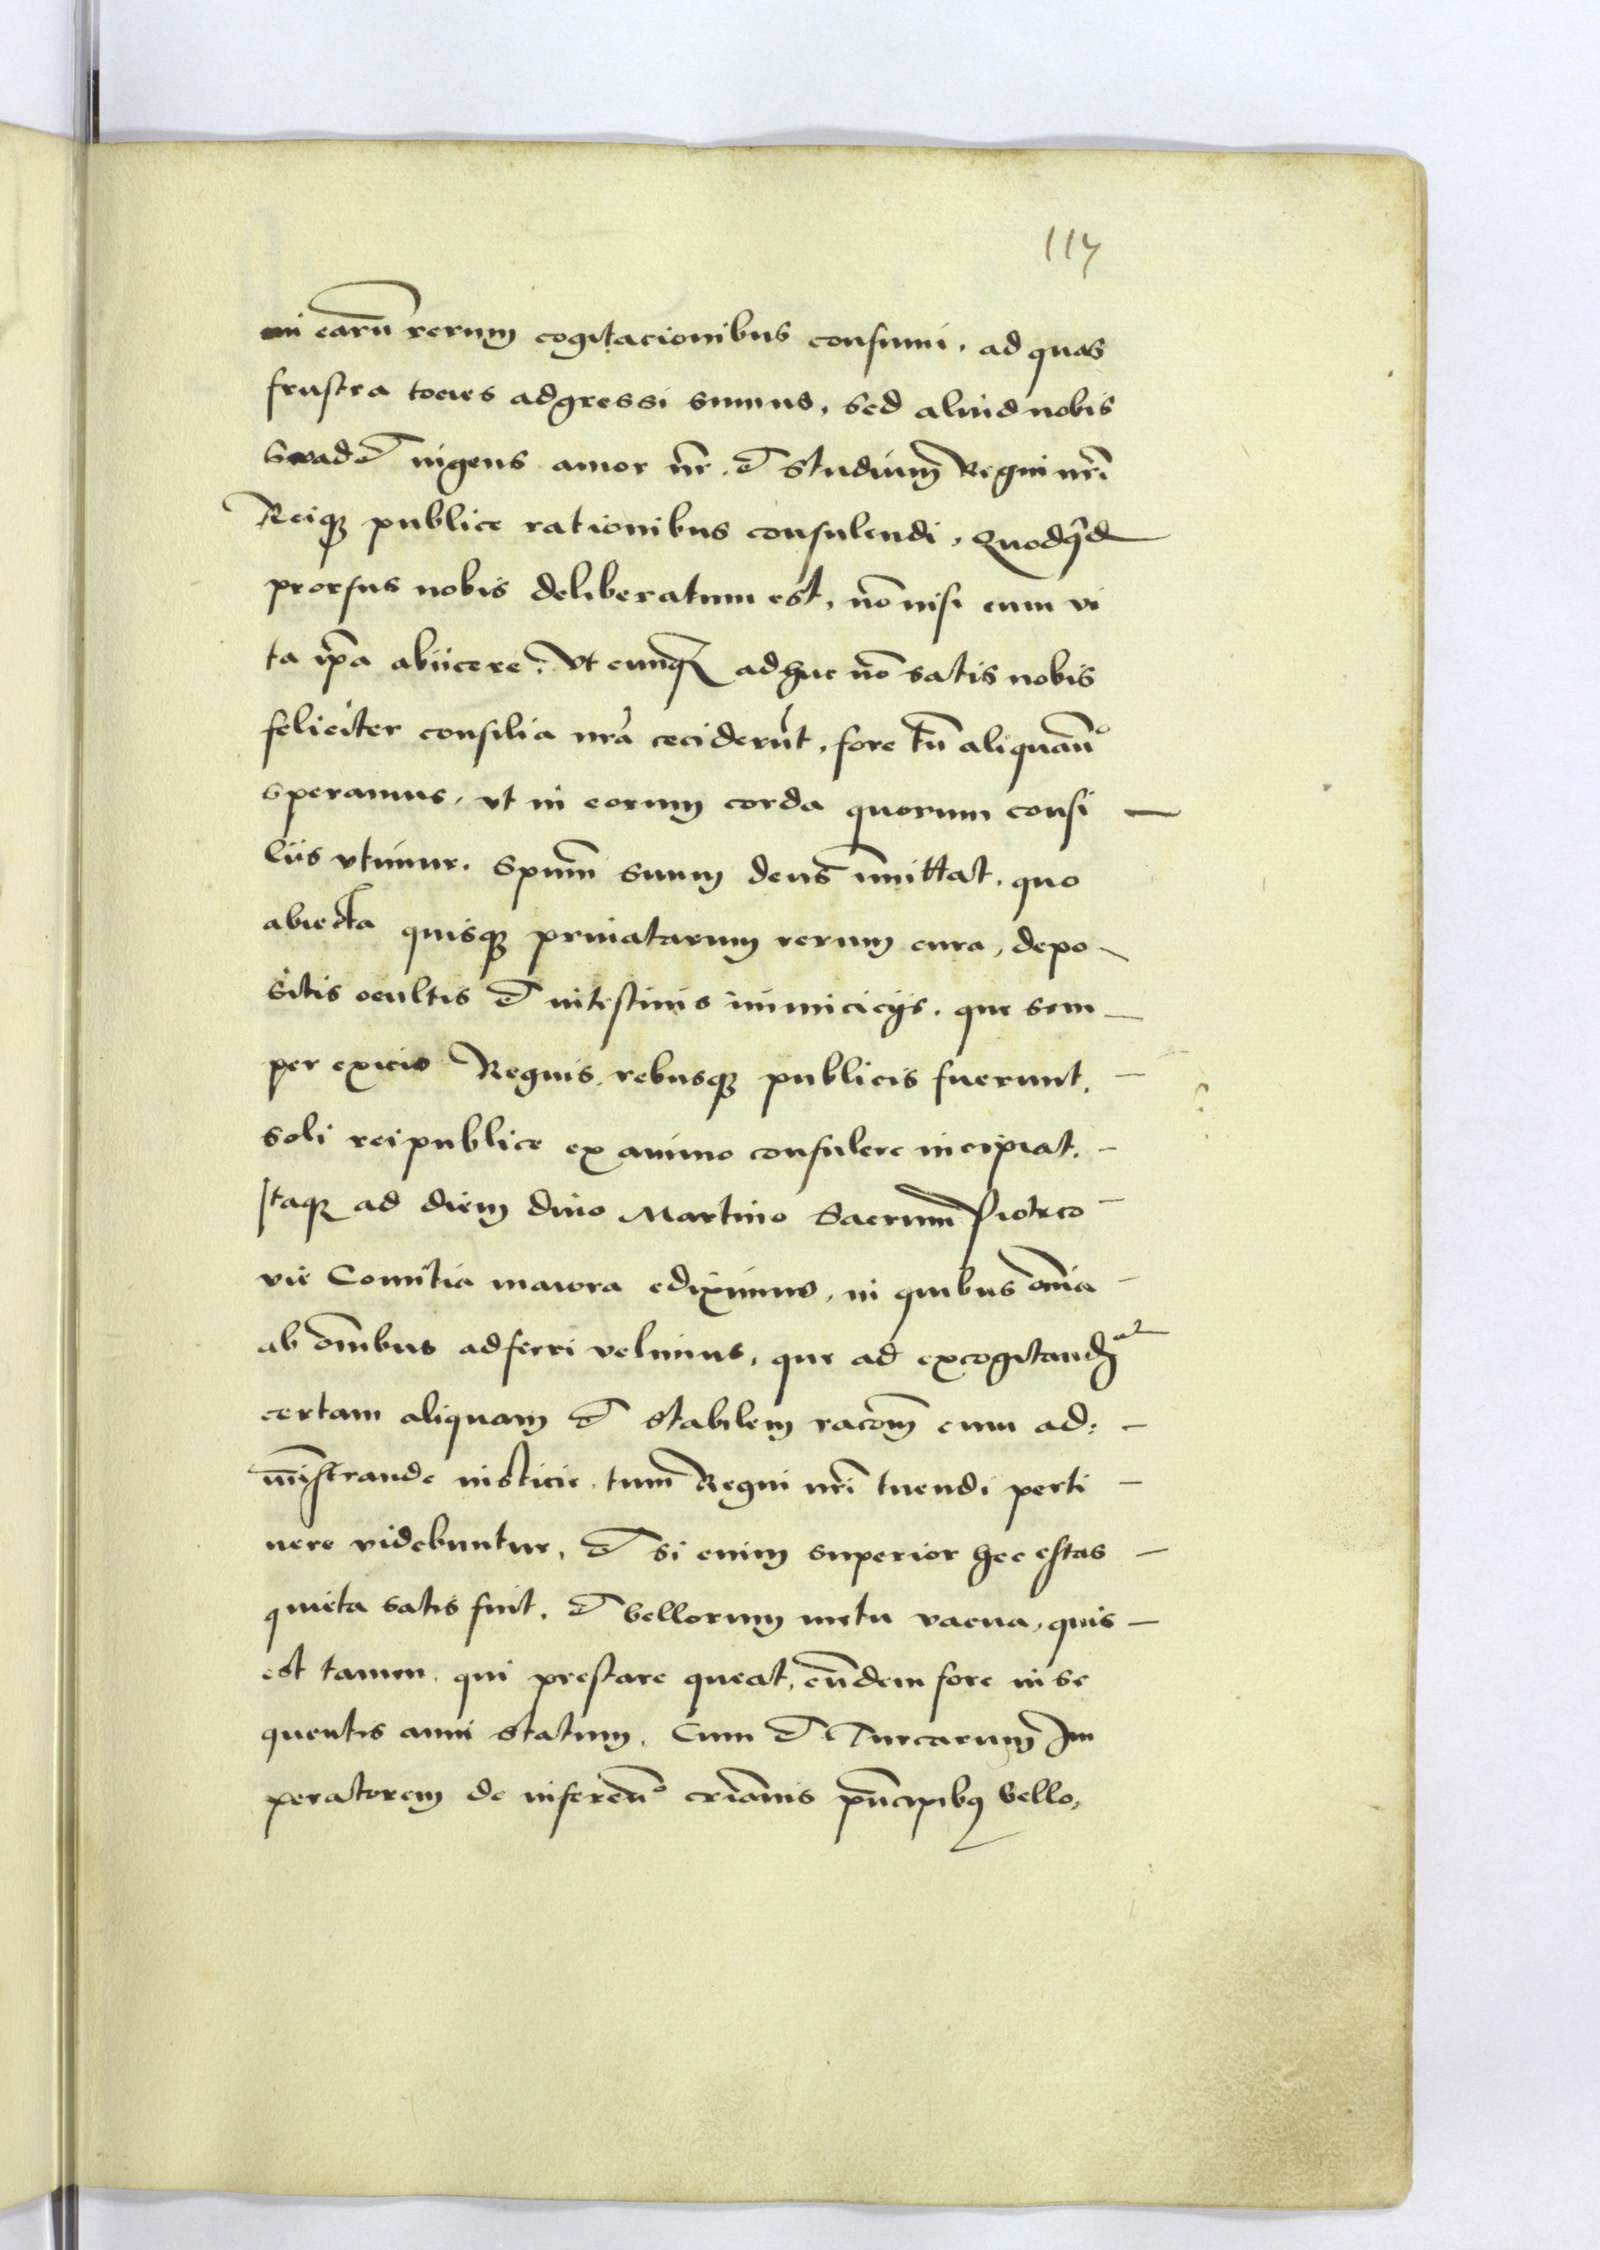 117
in earu̅ rerum cogitacionibus consumi, ad quas
frustra tocies adgressi sumus, sed aliud nobis
swadet ingens amor nr̅, et studium Regni nr̅i
Reiqꝫ publice rationibus consulendi, Quodq̅d
prorsus nobis deliberatum est, no̅ nisi cum vi
ta ip̅a abiicere. Vt cunqꝫ adhuc no̅ satis nobis
feliciter consilia nr̅a ceciderūt, fore tn̅ aliquan̅º
speramus, vt in eorum corda quorum consi
liis vtimur. Spu̅m suum deus im̅ittat, quo
abiecta quisqꝫ priuatarum rerum cura, depo
sitis ocultis et intestinis inimicicijs, que sem
per exicio Regnis rebusqꝫ publicis fuerunt,
soli reipublice ex animo consulere incipiat.
Itaqꝫ ad diem diuo Martino Sacrum Piotrco
vie Comitia maiora ediximus, in quibus om̅ia
ab om̅ibus adferri velimus, que ad excogitand̅
certam aliquam et stabilem raco̅m cum ad:
mi̅strande iusticie tum Regni nr̅i tuendi perti
nere videbuntur, et si enim superior hec estas
quieta satis fuit, et bellorum metu vacua, quis
est tamen qui prestare queat, eu̅dem fore inse
quentis anni statum. Cum et Turcarum Im
peratorem de inferen̅º cr̅ianis prin̅cipibꝰ bello,